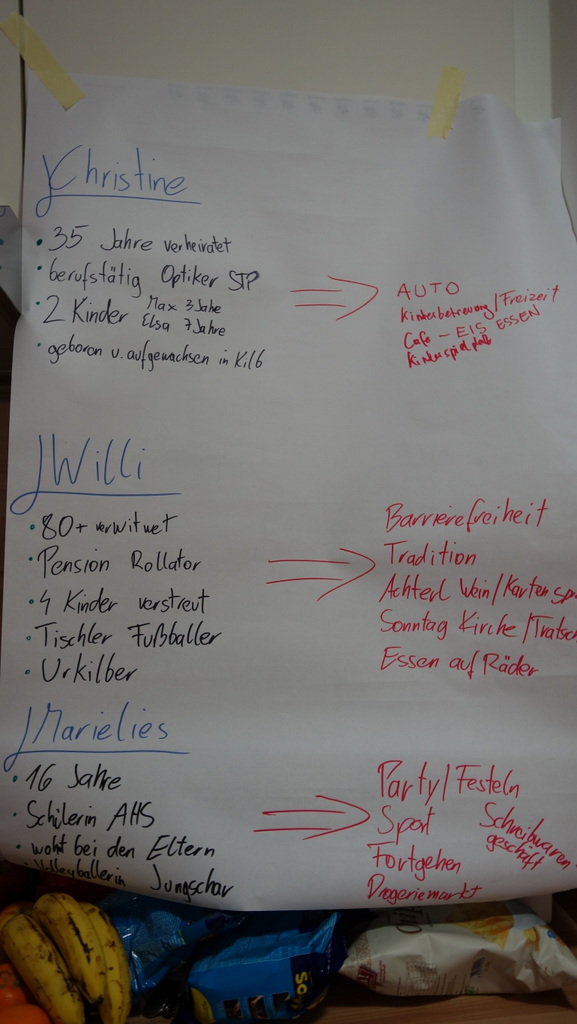 Christine
• 35 Jahre verheiratet
• berufstätig Optiker STP
• 2 Kinder Max 3 Jahe
Elsa 7 Jahre
• geboron u. aufgewachsen in Kilb
AUTO
Kinderbetreuung/Freizeit
Cafe – EIS ESSEN
Kinderspielplatz
Willi
• 80+ verwitwet
• Pension Rollator
• 4 Kinder verstreut
• Tischler Fußballer
• Urkilber
Barrierefreiheit
Tradition
Achterl Wein/Karten
Sonntag Kirche/Tratsch
Essen auf Räder
Marielies
• 16 Jahre
• Schülerin AHS
• woht bei den Eltern
• Volleyballerin Jungschar
Party/Festeln
Sport
Schreibwaren-
geschäft
Fortgehen
Drogeriemarkt